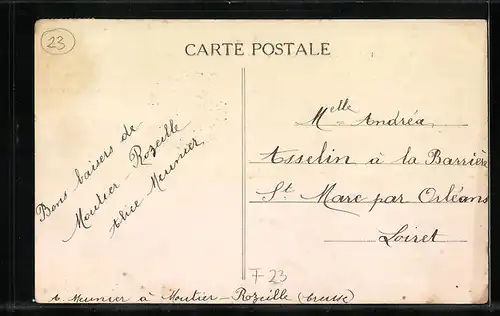 23
CARTE POSTALE
Bons baisers de
Moutier-Rozeille
Alice Meunier
Melle Andréa
Asselin à la Barrière
St Marc par Orléans
Loiret
F 23
A. Meunier à Moutier-Rozeille (Creuse)